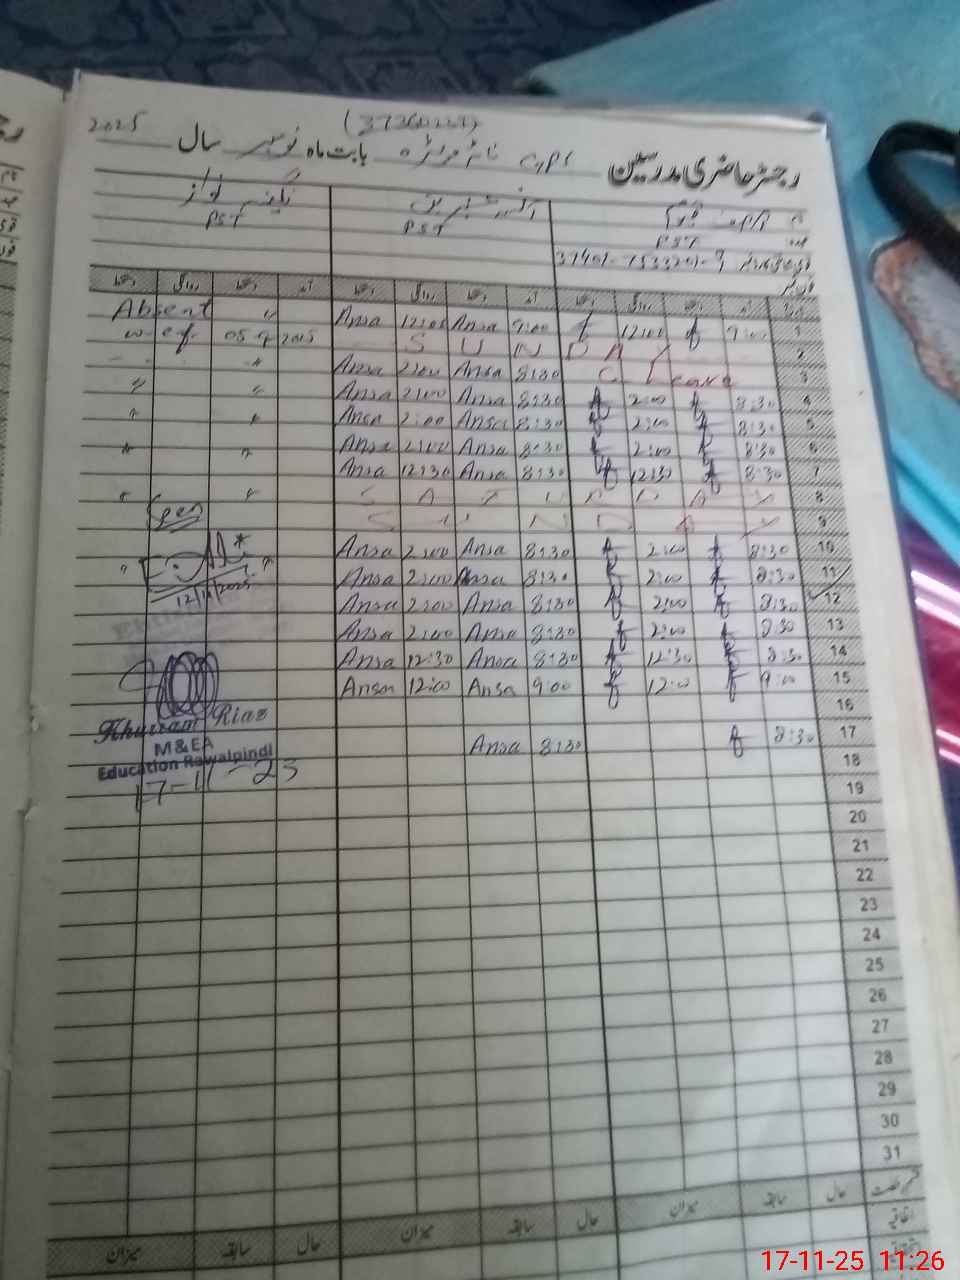 2025 سال نومبر بابت ماہ (37360227) GPS رجسٹر حاضری مدرسین
PST PST PST
37401-7533201-9
دستخط روانگی دستخط آمد دستخط روانگی دستخط آمد دستخط روانگی دستخط آمد
Absent 〃 Ansa 12:00 Ansa 9:00 12:00 9:00 1
w.e.f. 05-9-2025 S U N D A Y 2
Ansa 2:00 Ansa 8:30 C. Leave 3
〃 〃 Ansa 2:00 Ansa 8:30 2:00 8:30 4
〃 〃 Ansa 2:00 Ansa 8:30 2:00 8:30 5
〃 〃 Ansa 2:00 Ansa 8:30 2:00 8:30 6
Ansa 12:30 Ansa 8:30 12:30 8:30 7
〃 〃 S A T U R D A Y 8
Seen S U N D A Y 9
Ansa 2:00 Ansa 8:30 2:00 8:30 10
〃 〃 Ansa 2:00 Ansa 8:30 2:00 8:30 11
12/11/2025 Ansa 2:00 Ansa 8:30 2:00 8:30 12
Ansa 2:00 Ansa 8:30 2:00 8:30 13
Ansa 12:30 Ansa 8:30 12:30 8:30 14
Ansa 12:00 Ansa 9:00 12:00 9:00 15
16
Khurram Riaz
M&EA
Education Rawalpindi
17-11-25
Ansa 8:30 8:30 17
18
19
20
21
22
23
24
25
26
27
28
29
30
31
میزان سابقہ حال میزان سابقہ حال میزان سابقہ حال
اتفاقیہ
17-11-25 11:26